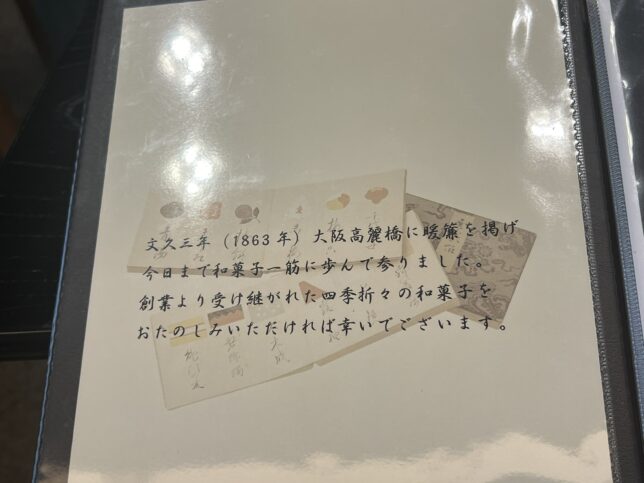 文久三年（1863年）大阪高麗橋に暖簾を掲げ
今日まで和菓子一筋に歩んで参りました。
創業より受け継がれた四季折々の和菓子を
おたのしみいただければ幸いでございます。